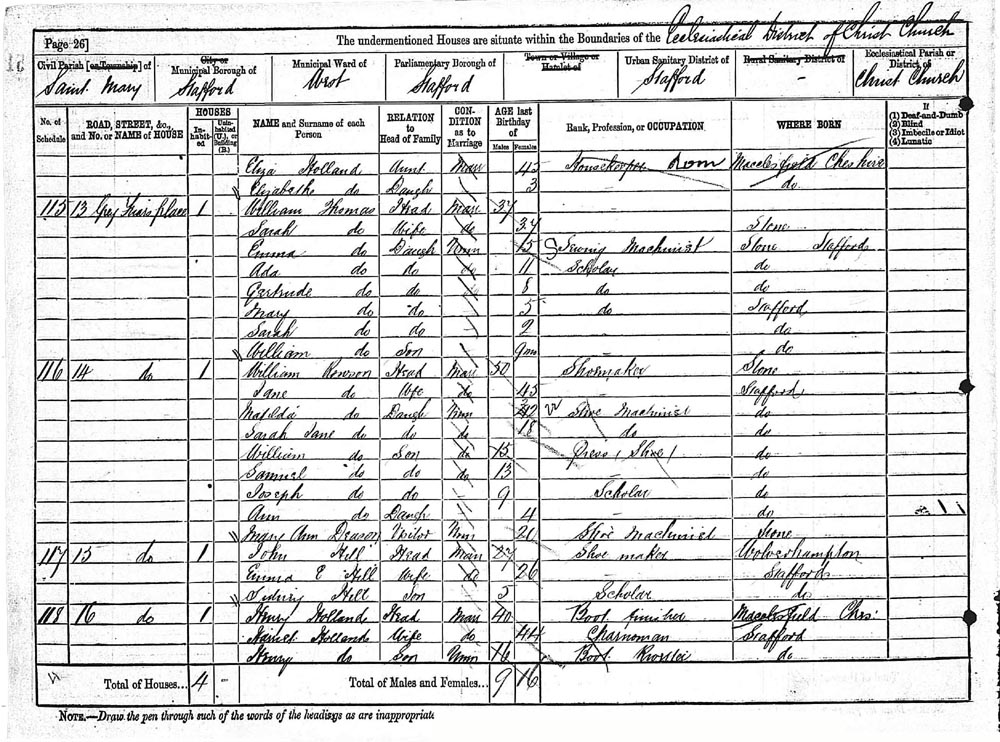 Page 26] The undermentioned Houses are situate within the Boundaries of the Ecclesiastical District of Christ Church
Civil Parish [or Township] of City or Municipal Borough of Municipal Ward of Parliamentary Borough of Town or Village or Hamlet of Urban Sanitary District of Rural Sanitary District of Ecclesiastical Parish or District of
Saint Mary Stafford West Stafford Stafford - Christ Church
No. of Schedule ROAD, STREET, &c., and No. or NAME of HOUSE HOUSES Inhabited Uninhabited (U.), or Building (B.) NAME and Surname of each Person RELATION to Head of Family CONDITION as to Marriage AGE last Birthday of Males Females Rank, Profession, or OCCUPATION WHERE BORN If (1) Deaf-and-Dumb (2) Blind (3) Imbecile or Idiot (4) Lunatic
Eliza Holland Aunt Mar 45 Housekeeper Dom Macclesfield Cheshire
Elizabeth do Daugh 3 do
115 13 Grey Friars place 1 William Thomas Head Mar 37
Sarah do Wife do 37 Stone
Emma do Daugh Unm 15 Sewing Machinist Stone Stafford
Ada do do do 11 Scholar do
Gertrude do do 8 do do
Mary do do 5 do Stafford
Sarah do 2 do
William do Son 9m do
116 14 do 1 William Rowson Head Mar 50 Shoemaker Stone
Jane do Wife do 45 Stafford
Matilda do Daugh Unm Shoe Machinist do
Sarah Jane do do do 18 do do
William do Son do 15 Press (Shoe) do
Samuel do do do 13 - do
Joseph do do 9 Scholar do
Ann do Daugh 4 - do
Mary Ann Deason Visitor Unm 20 Shoe Machinist Stone
117 15 do 1 John Hill Head Mar 27 Shoe maker Wolverhampton
Emma E Hill Wife do 26 Stafford
Sidney Hill Son 5 Scholar do
118 16 do 1 Henry Holland Head Mar 40 Boot finisher Macclesfield Ches:
Harriet Holland Wife do 44 Charwoman Stafford
Henry do Son Unm 16 Boot do
Total of Houses... 4 - Total of Males and Females... 9 16
NOTE.—Draw the pen through such of the words of the headings as are inappropriate